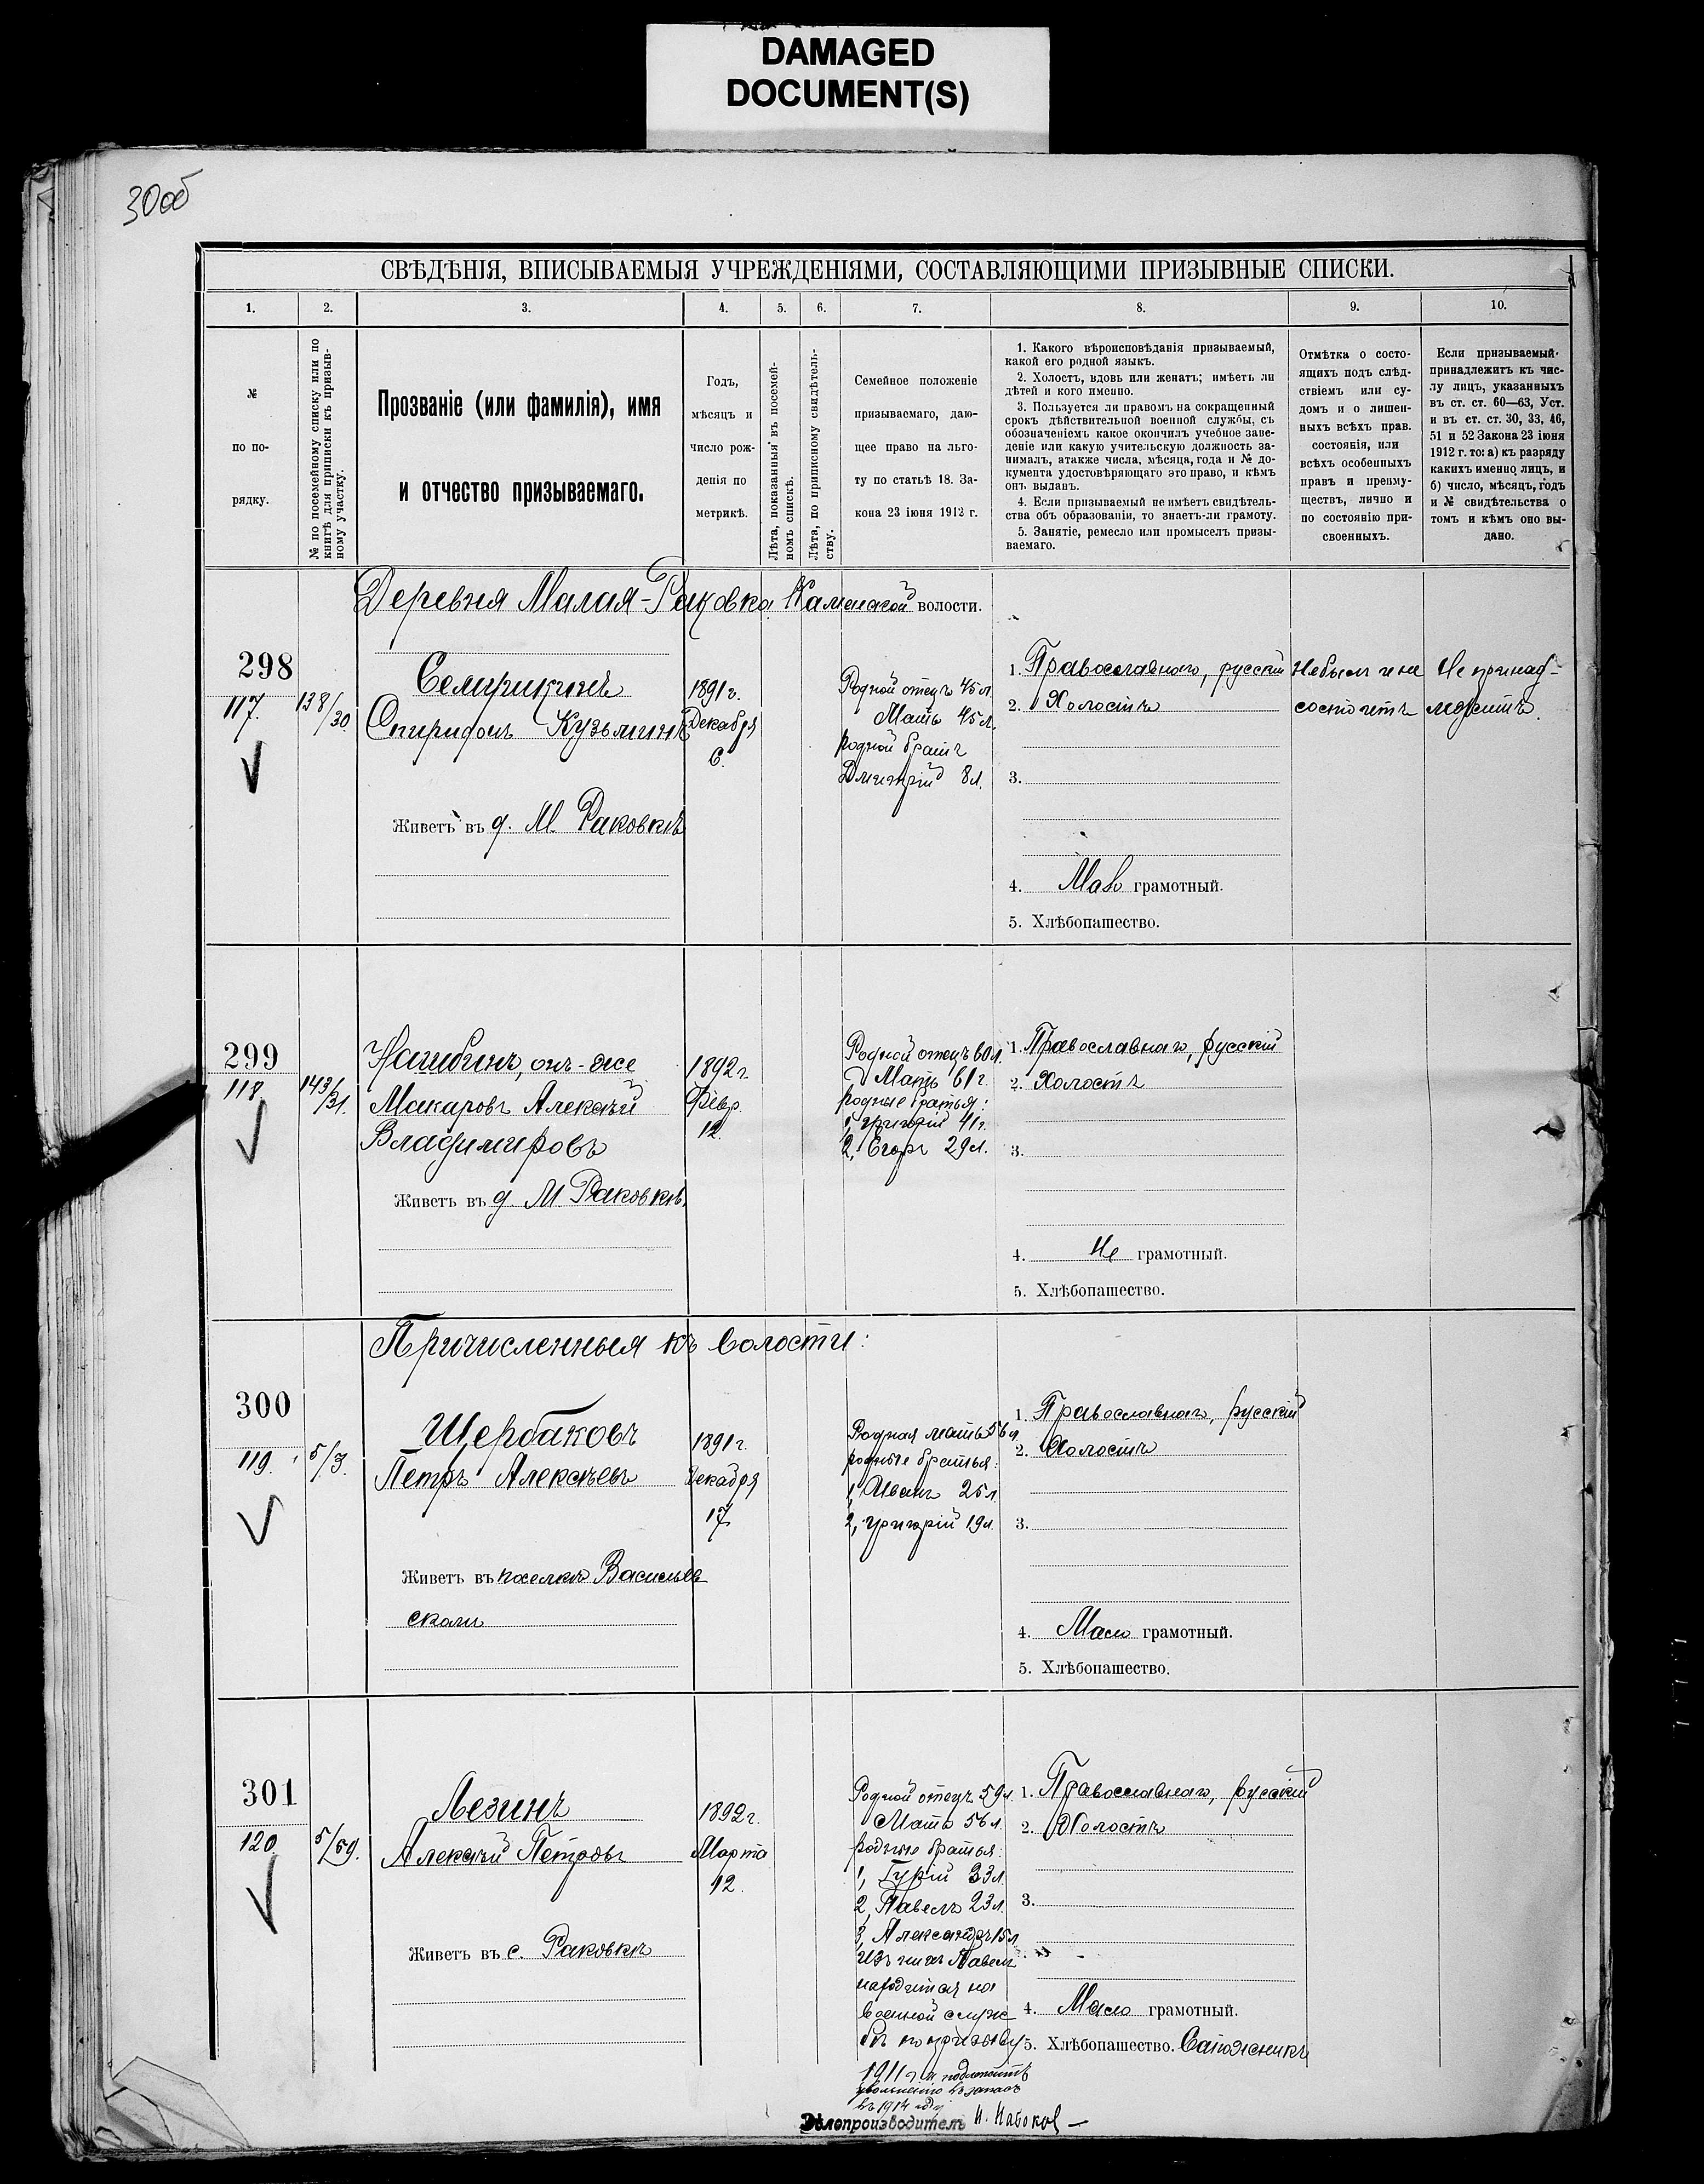 DAMAGED
DOCUMENT(S)
30об
СВѢДѢНІЯ, ВПИСЫВАЕМЫЯ УЧРЕЖДЕНІЯМИ, СОСТАВЛЯЮЩИМИ ПРИЗЫВНЫЕ СПИСКИ.
1. 2. 3. 4. 5. 6. 7. 8. 9. 10.
№
по по-
рядку.
№ по посемейному списку или по
книгѣ для приписки къ призыв-
ному участку.
Прозваніе (или фамилія), имя
и отчество призываемаго.
Годъ,
мѣсяцъ и
число рож-
денія по
метрикѣ.
Лѣта, показанныя въ посемей-
номъ спискѣ.
Лѣта, по приписному свидѣтель-
ству.
Семейное положеніе
призываемаго, даю-
щее право на льго-
ту по статьѣ 18. За-
кона 23 іюня 1912 г.
1. Какого вѣроисповѣданія призываемый,
какой его родной языкъ.
2. Холостъ, вдовъ или женатъ; имѣетъ ли
дѣтей и кого именно.
3. Пользуется ли правомъ на сокращенный
срокъ дѣйствительной военной службы, съ
обозначеніемъ какое окончилъ учебное заве-
деніе или какую учительскую должность за-
нималъ, атакже числа, мѣсяца, года и № до-
кумента удостовѣряющаго это право, и кѣмъ
онъ выданъ.
4. Если призываемый не имѣетъ свидѣтель-
ства объ образованіи, то знаетъ-ли грамоту.
5. Занятіе, ремесло или промыселъ призы-
ваемаго.
Отмѣтка о состо-
ящихъ подъ слѣд-
ствіемъ или су-
домъ и о лишен-
ныхъ всѣхъ прав.
состоянія, или
всѣхъ особенныхъ
правъ и преиму-
ществъ, лично и
по состоянію при-
своенныхъ.
Если призываемый
принадлежитъ къ чис-
лу лицъ, указанныхъ
въ ст. ст. 60—63, Уст.
и въ ст. ст. 30, 33, 46,
51 и 52 Закона 23 іюня
1912 г. то: а) къ разряду
какихъ именно лицъ, и
б) число, мѣсяцъ, годъ
и № свидѣтельства о
томъ и кѣмъ оно вы-
дано.
Деревня Малая-Раковка Каменской волости.
298
117.
138/30
Семирикинъ
Спиридонъ Кузьминъ
Живетъ въ д. М. Раковкѣ
1891 г.
Декабря
6.
Родной отецъ 45 л.
Мать 45 л.
родной братъ
Дмитрій 8 л.
1. Православнаго, русскій
2. Холостъ
3.
4. Мало грамотный.
5. Хлѣбопашество.
Не былъ и не
состоитъ
Не принад-
лежитъ.
299
118.
143/31.
Нагибинъ, онъ-же
Макаровъ Алексѣй
Владимировъ
Живетъ въ д. М. Раковкѣ.
1892 г.
Февр.
12.
Родной отецъ 60 л.
Мать 61 г.
родные братья:
1, Григорій 41 г.
2, Егоръ 29 л.
1. Православнаго, русскій
2. Холостъ
3.
4. Не грамотный.
5. Хлѣбопашество.
Причисленныя къ волости:
300
119.
5/3.
Щербаковъ
Петръ Алексѣевъ
Живетъ въ поселкѣ Васильев
скомъ
1891 г.
Декабря
17
Родная мать 56 л.
родные братья:
1, Иванъ 25 л.
2, Григорій 19 л.
1. Православнаго, русскій
2. Холостъ
3.
4. Мало грамотный.
5. Хлѣбопашество.
301
120.
5/69.
Лезинъ
Алексѣй Петровъ
Живетъ въ с. Раковкѣ
1892 г.
Марта
12.
Родной отецъ 59 л.
Мать 56 л.
родные братья:
1, Гурій 33 л.
2, Павелъ 23 л.
3, Александръ 15 л.
Изъ нихъ Павелъ
находится на
военной служ
бѣ по призыву
1911 г. и подлежитъ
увольненію въ запасъ
въ 1914 году
1. Православнаго, русскій
2. Холостъ
3.
4. Мало грамотный.
5. Хлѣбопашество. Сапожникъ
Дѣлопроизводитель Н. Набоковъ